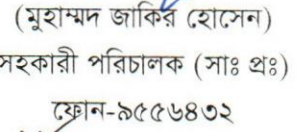 (মুহাম্মদ জাকির হোসেন)
সহকারী পরিচালক (সাঃ প্রঃ)
ফোন-৯৫৫৬৪৩২